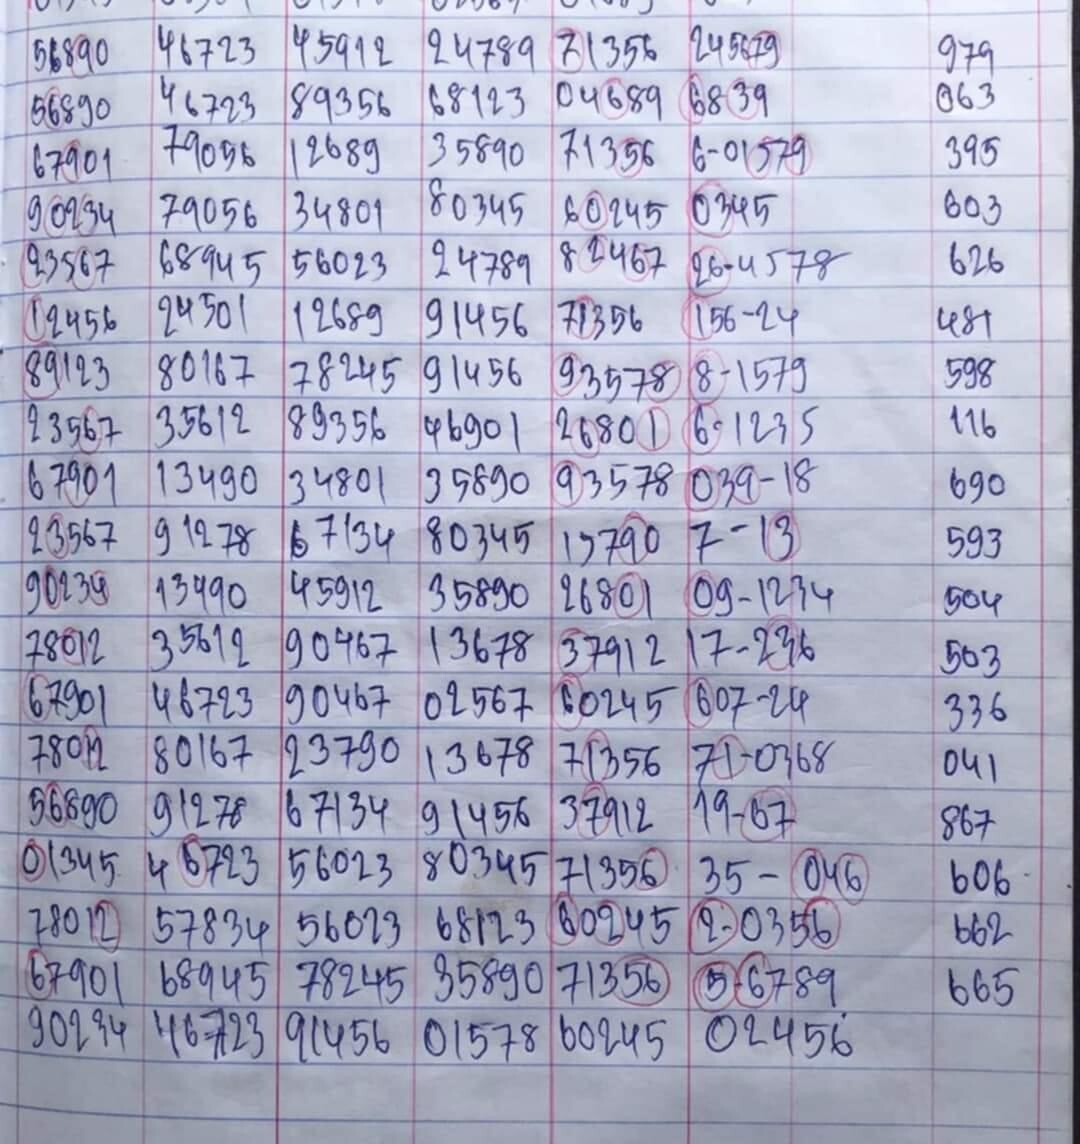 56890 46723 45912 24789 71356 245679 979
56890 46723 89356 68123 04689 6839 063
67901 79056 12689 35890 71356 6-01579 395
90234 79056 34801 80345 60245 0345 603
23567 68945 56023 24789 82467 26-4578 626
12456 24501 12689 91456 71356 156-24 481
89123 80167 78245 91456 93578 8-1579 598
23567 35612 89356 46901 26801 6-1235 116
67901 13490 34801 35890 93578 039-18 690
23567 91278 67134 80345 15790 7-13 593
90234 13490 45912 35890 26801 09-1234 504
78012 35612 90467 13678 37912 17-236 503
67901 46723 90467 02567 60245 607-24 336
78012 80167 23790 13678 71356 71-0368 041
56890 91278 67134 91456 37912 19-67 867
01345 46723 56023 80345 71356 35-046 606
78012 57834 56023 68123 60245 2-0356 662
67901 68945 78245 35890 71356 5-6789 665
90234 46723 91456 01578 60245 02456